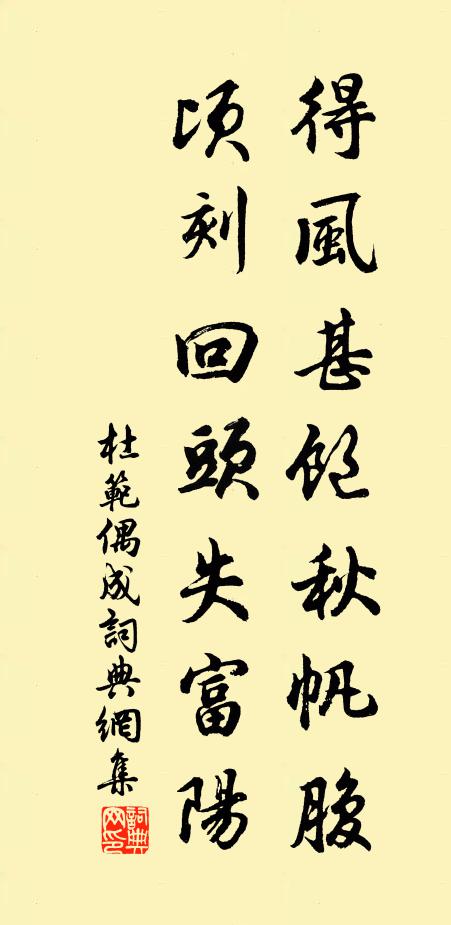 得風甚飽秋帆腹
頃刻回頭失富陽
杜範偶成詞典網集
詞典網印